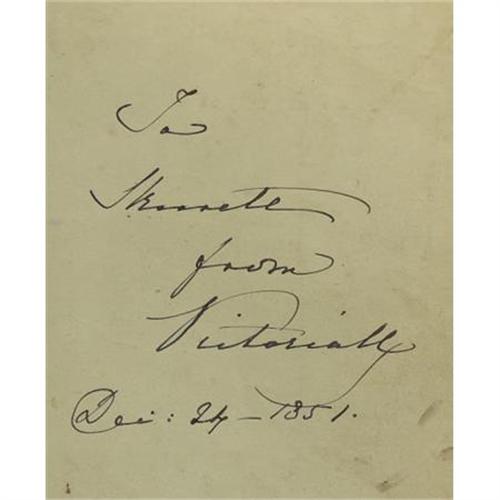 To
Skerrett
from
Victoria R
Dec: 24 – 1851.